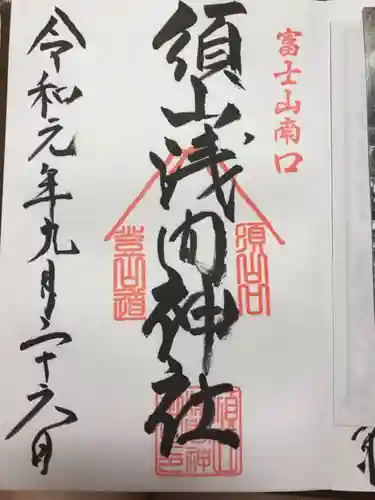 富士山南口
須山口
須山浅間神社
登山道
令和元年九月二十六日